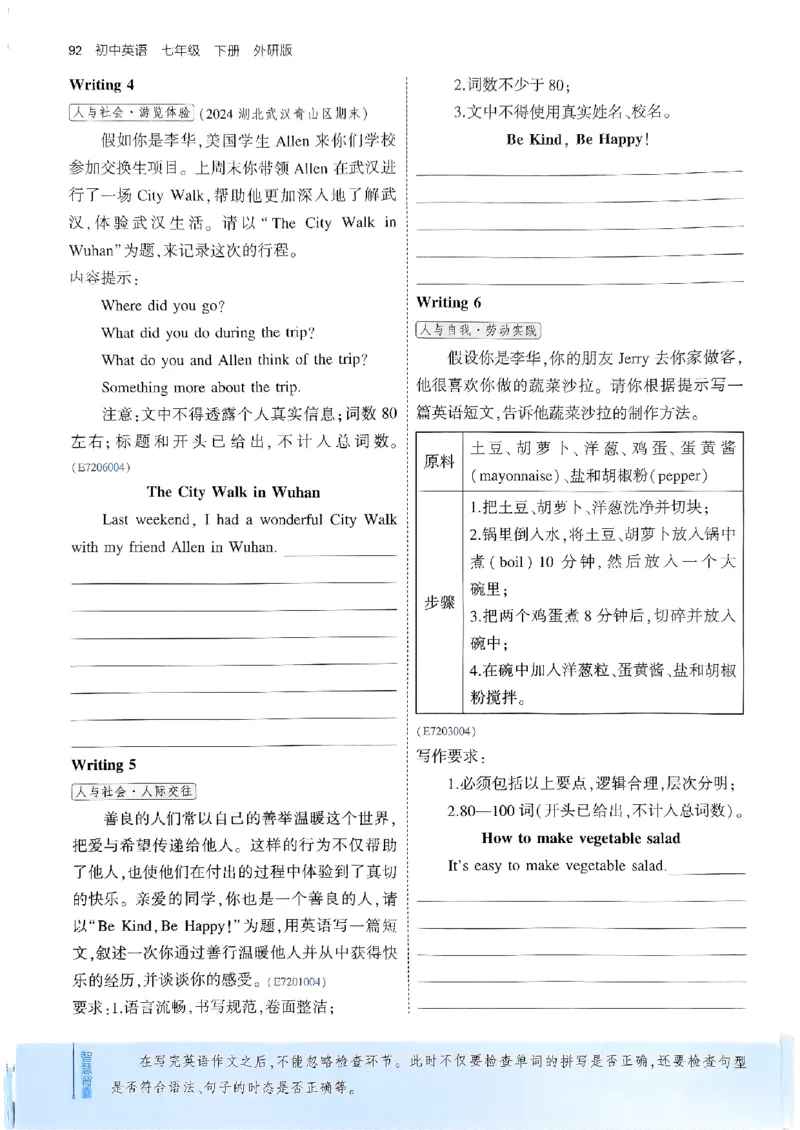 92 初中英语 七年级 下册 外研版
Writing 4
人与社会·游览体验 (2024 湖北武汉青山区期末)
假如你是李华,美国学生 Allen 来你们学校
参加交换生项目。上周末你带领 Allen 在武汉进
行了一场 City Walk,帮助他更加深入地了解武
汉,体验武汉生活。请以“The City Walk in
Wuhan”为题,来记录这次的行程。
内容提示:
Where did you go?
What did you do during the trip?
What do you and Allen think of the trip?
Something more about the trip.
注意:文中不得透露个人真实信息;词数 80
左右;标题和开头已给出,不计入总词数。
(E7206004)
The City Walk in Wuhan
Last weekend, I had a wonderful City Walk
with my friend Allen in Wuhan.
Writing 5
人与社会·人际交往
善良的人们常以自己的善举温暖这个世界,
把爱与希望传递给他人。这样的行为不仅帮助
了他人,也使他们在付出的过程中体验到了真切
的快乐。亲爱的同学,你也是一个善良的人,请
以“Be Kind,Be Happy!”为题,用英语写一篇短
文,叙述一次你通过善行温暖他人并从中获得快
乐的经历,并谈谈你的感受。(E7201004)
要求:1.语言流畅,书写规范,卷面整洁;
2.词数不少于 80;
3.文中不得使用真实姓名、校名。
Be Kind, Be Happy!
Writing 6
人与自我·劳动实践
假设你是李华,你的朋友 Jerry 去你家做客,
他很喜欢你做的蔬菜沙拉。请你根据提示写一
篇英语短文,告诉他蔬菜沙拉的制作方法。
原料
土豆、胡萝卜、洋葱、鸡蛋、蛋黄酱
(mayonnaise)、盐和胡椒粉(pepper)
步骤
1.把土豆、胡萝卜、洋葱洗净并切块;
2.锅里倒入水,将土豆、胡萝卜放入锅中
煮(boil)10 分钟,然后放入一个大
碗里;
3.把两个鸡蛋煮 8 分钟后,切碎并放入
碗中;
4.在碗中加入洋葱粒、蛋黄酱、盐和胡椒
粉搅拌。
(E7203004)
写作要求:
1.必须包括以上要点,逻辑合理,层次分明;
2.80—100 词(开头已给出,不计入总词数)。
How to make vegetable salad
It's easy to make vegetable salad.
智慧背囊
在写完英语作文之后,不能忽略检查环节。此时不仅要检查单词的拼写是否正确,还要检查句型
是否符合语法、句子的时态是否正确等。